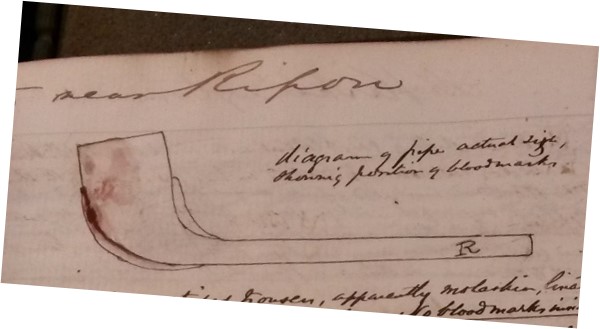 near Ripon
diagram of pipe actual size,
showing position of bloodmarks
R
trousers, apparently moleskin,
No bloodmarks